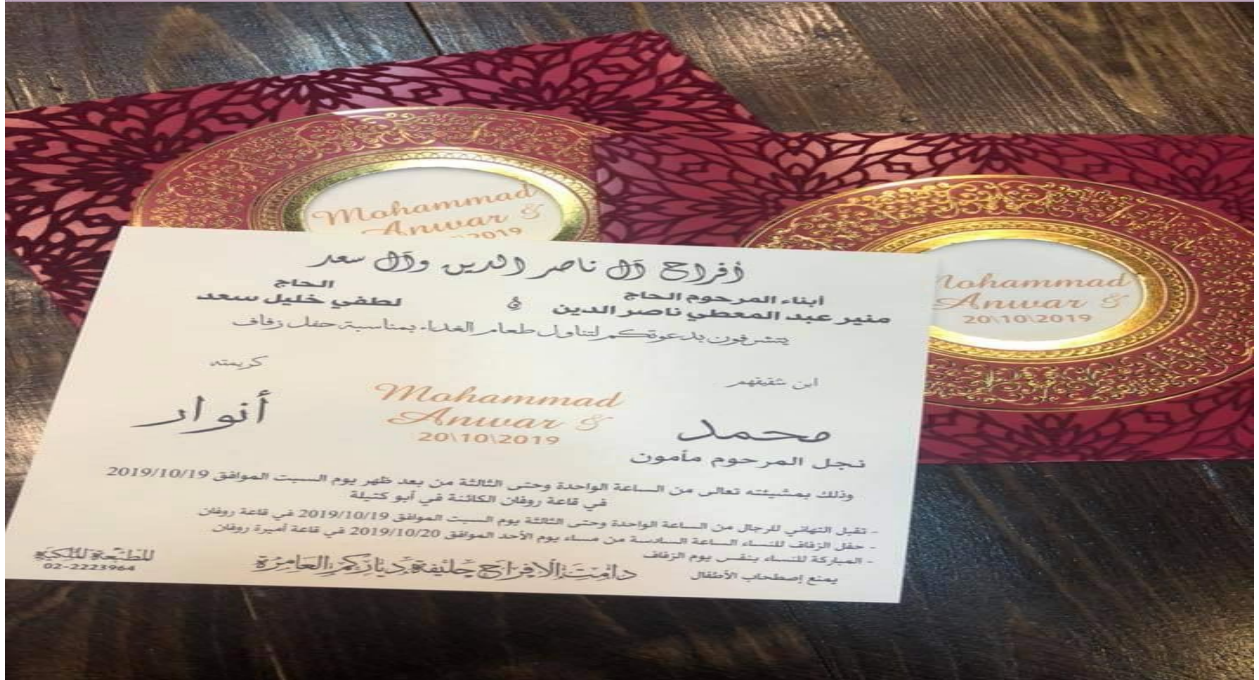 Mohammad
Anwar &
2019
Mohammad
Anwar &
20\10\2019
أفراح آل ناصر الدين وآل سعد
أبناء المرحوم الحاج
منير عبد المعطي ناصر الدين
و
الحاج
لطفي خليل سعد
يتشرفون بدعوتكم لتناول طعام الغداء بمناسبة حفل زفاف
ابن شقيقهم
محمد
نجل المرحوم مأمون
Mohammad
Anwar &
20\10\2019
كريمته
أنوار
وذلك بمشيئته تعالى من الساعة الواحدة وحتى الثالثة من بعد ظهر يوم السبت الموافق 2019/10/19
في قاعة روفان الكائنة في أبو كتيلة
- تقبل التهاني للرجال من الساعة الواحدة وحتى الثالثة يوم السبت الموافق 2019/10/19 في قاعة روفان
- حفل الزفاف للنساء الساعة السادسة من مساء يوم الأحد الموافق 2019/10/20 في قاعة أميرة روفان
- المباركة للنساء بنفس يوم الزفاف
يمنع إصطحاب الأطفال
دامت الافراح حليفة دياركم العامرة
02-2223964